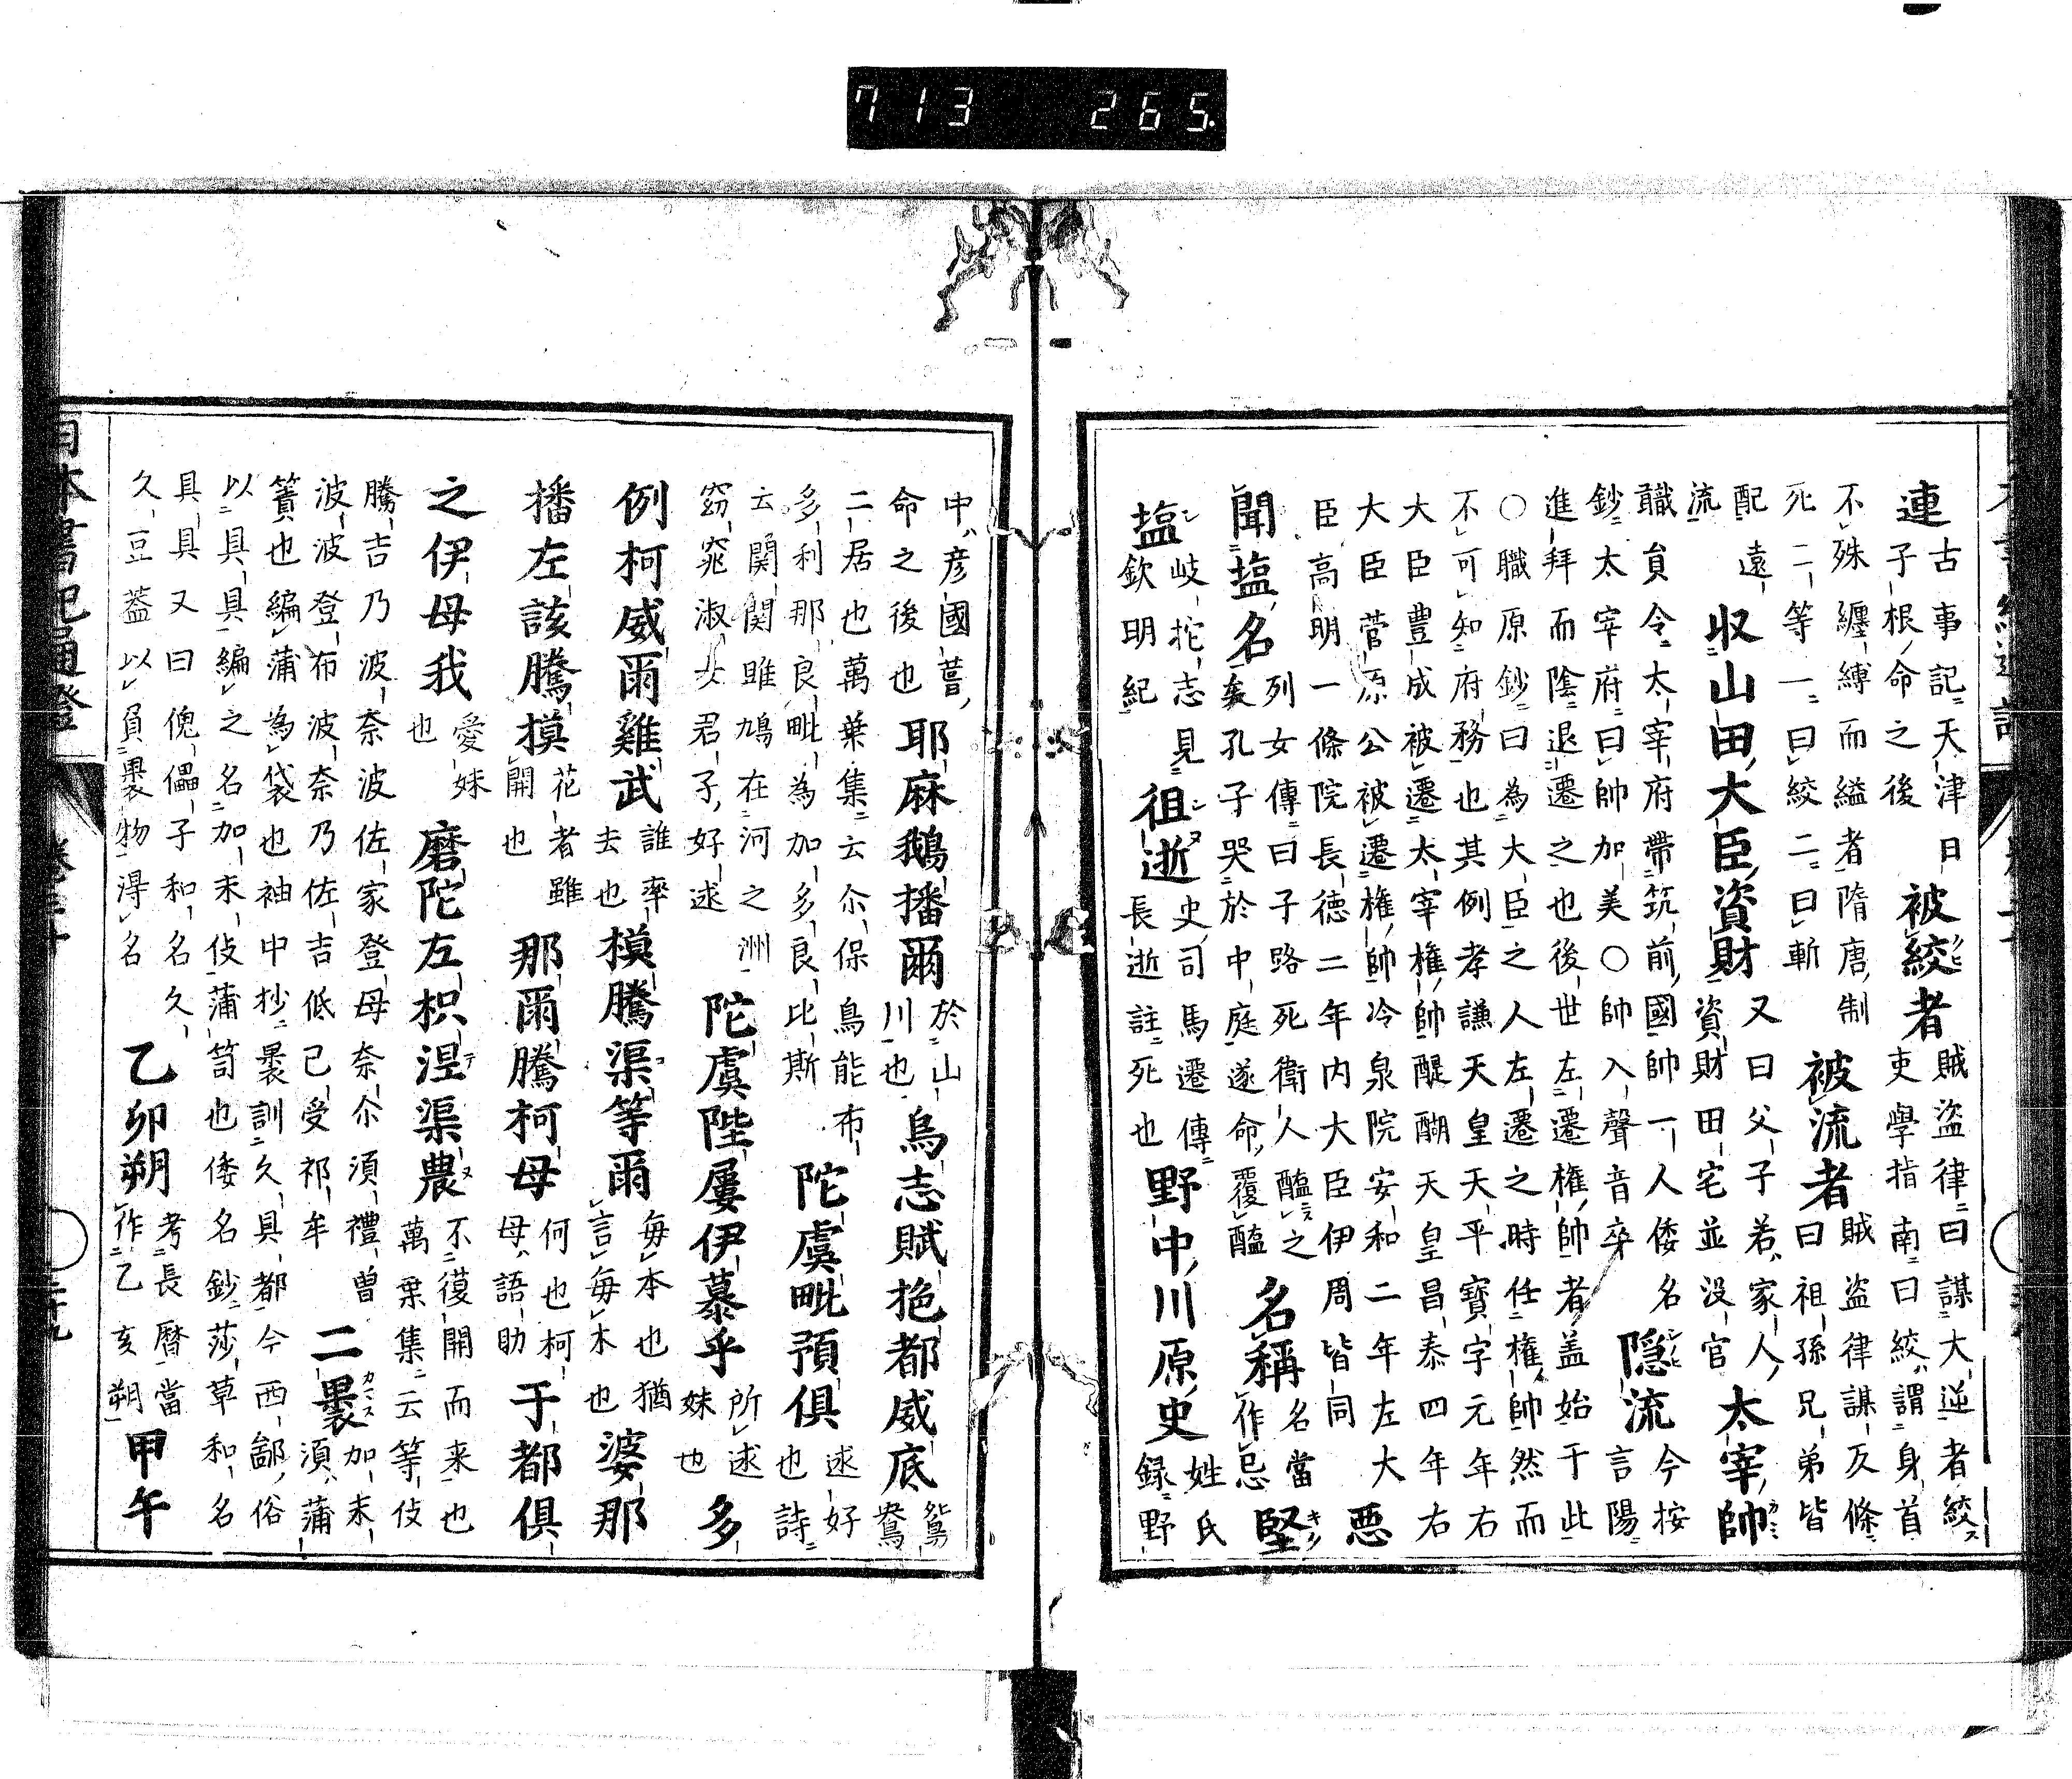 連古事記天津日
子根命之後被絞者賊盗律曰謀大逆者絞
吏學指南曰絞謂身首
不殊纏縛而縊者隋唐制
死二等一曰絞二曰斬被流者賊盗律謀反條
曰祖孫兄弟皆
配遠
流収山田大臣資財又曰父子若家人
資財田宅並没官太宰帥
職員令太宰府帶筑前國帥一人倭名
鈔太宰府曰帥加美○帥入聲音卒隠流今按
言陽
進拜而陰退遷之也後世左遷權帥者盖始于此
○職原鈔曰為大臣之人左遷之時任權帥然而
不可知府務也其例孝謙天皇天平寶字元年右
大臣豊成被遷太宰權帥醍醐天皇昌泰四年右
大臣菅原公被遷權帥冷泉院安和二年左大
臣高明一條院長徳二年内大臣伊周皆同悪
聞塩名列女傳曰子路死衛人醢之
矣孔子哭於中庭遂命覆醢名稱名當
作忌堅
塩岐拕志見
欽明紀徂逝史司馬遷傳
長逝註死也野中川原史姓氏
録野
中彦國葺
命之後也耶麻鵝播爾於山
川也烏志賦拖都威底鴛
鴦
二居也萬葉集云尒保鳥能布
多利那良毗為加多良比斯陀虞毗預倶逑好
也詩
云関関雎鳩在河之洲
窈窕淑女君子好逑陀虞陛屢伊慕乎所逑
妹也多
例柯威爾雞武誰率
去也模騰渠等爾毎本也猶
言毎木也婆那
播左該騰摸花者雖
開也那爾騰柯母何也柯
母語助于都倶
之伊母我愛妹
也磨陀左枳涅渠農不復開而来也
萬葉集云等伎
騰吉乃波奈波佐家登母奈尒須禮曽
波波登布波奈乃佐吉低己受祁牟二褁加末
須蒲
簀也編蒲為袋也袖中抄褁訓久具都今西鄙俗
以具具編之名加末伎蒲笥也倭名鈔莎草和名
具具又曰傀儡子和名久
久豆葢以負褁物得名乙卯朔考長暦當
作乙亥朔甲午